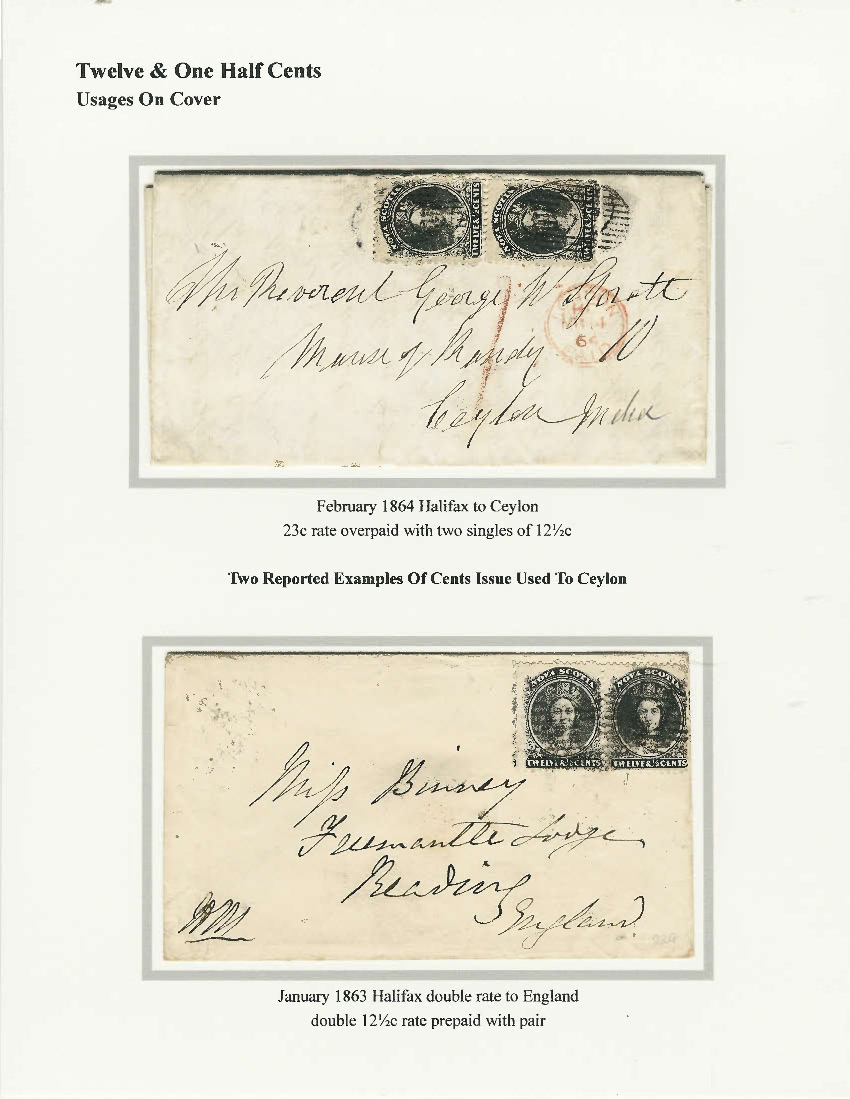 Twelve & One Half Cents
Usages On Cover
NOVA SCOTIA
TWELVE & ½ CENTS
NOVA SCOTIA
The Reverend George W Sprott
Manse of Kandy
Ceylon India
64
February 1864 Halifax to Ceylon
23c rate overpaid with two singles of 12½c
Two Reported Examples Of Cents Issue Used To Ceylon
NOVA SCOTIA
TWELVE & ½ CENTS
NOVA SCOTIA
TWELVE & ½ CENTS
Miss Binney
Freemantle Lodge
Reading
England
January 1863 Halifax double rate to England
double 12½c rate prepaid with pair